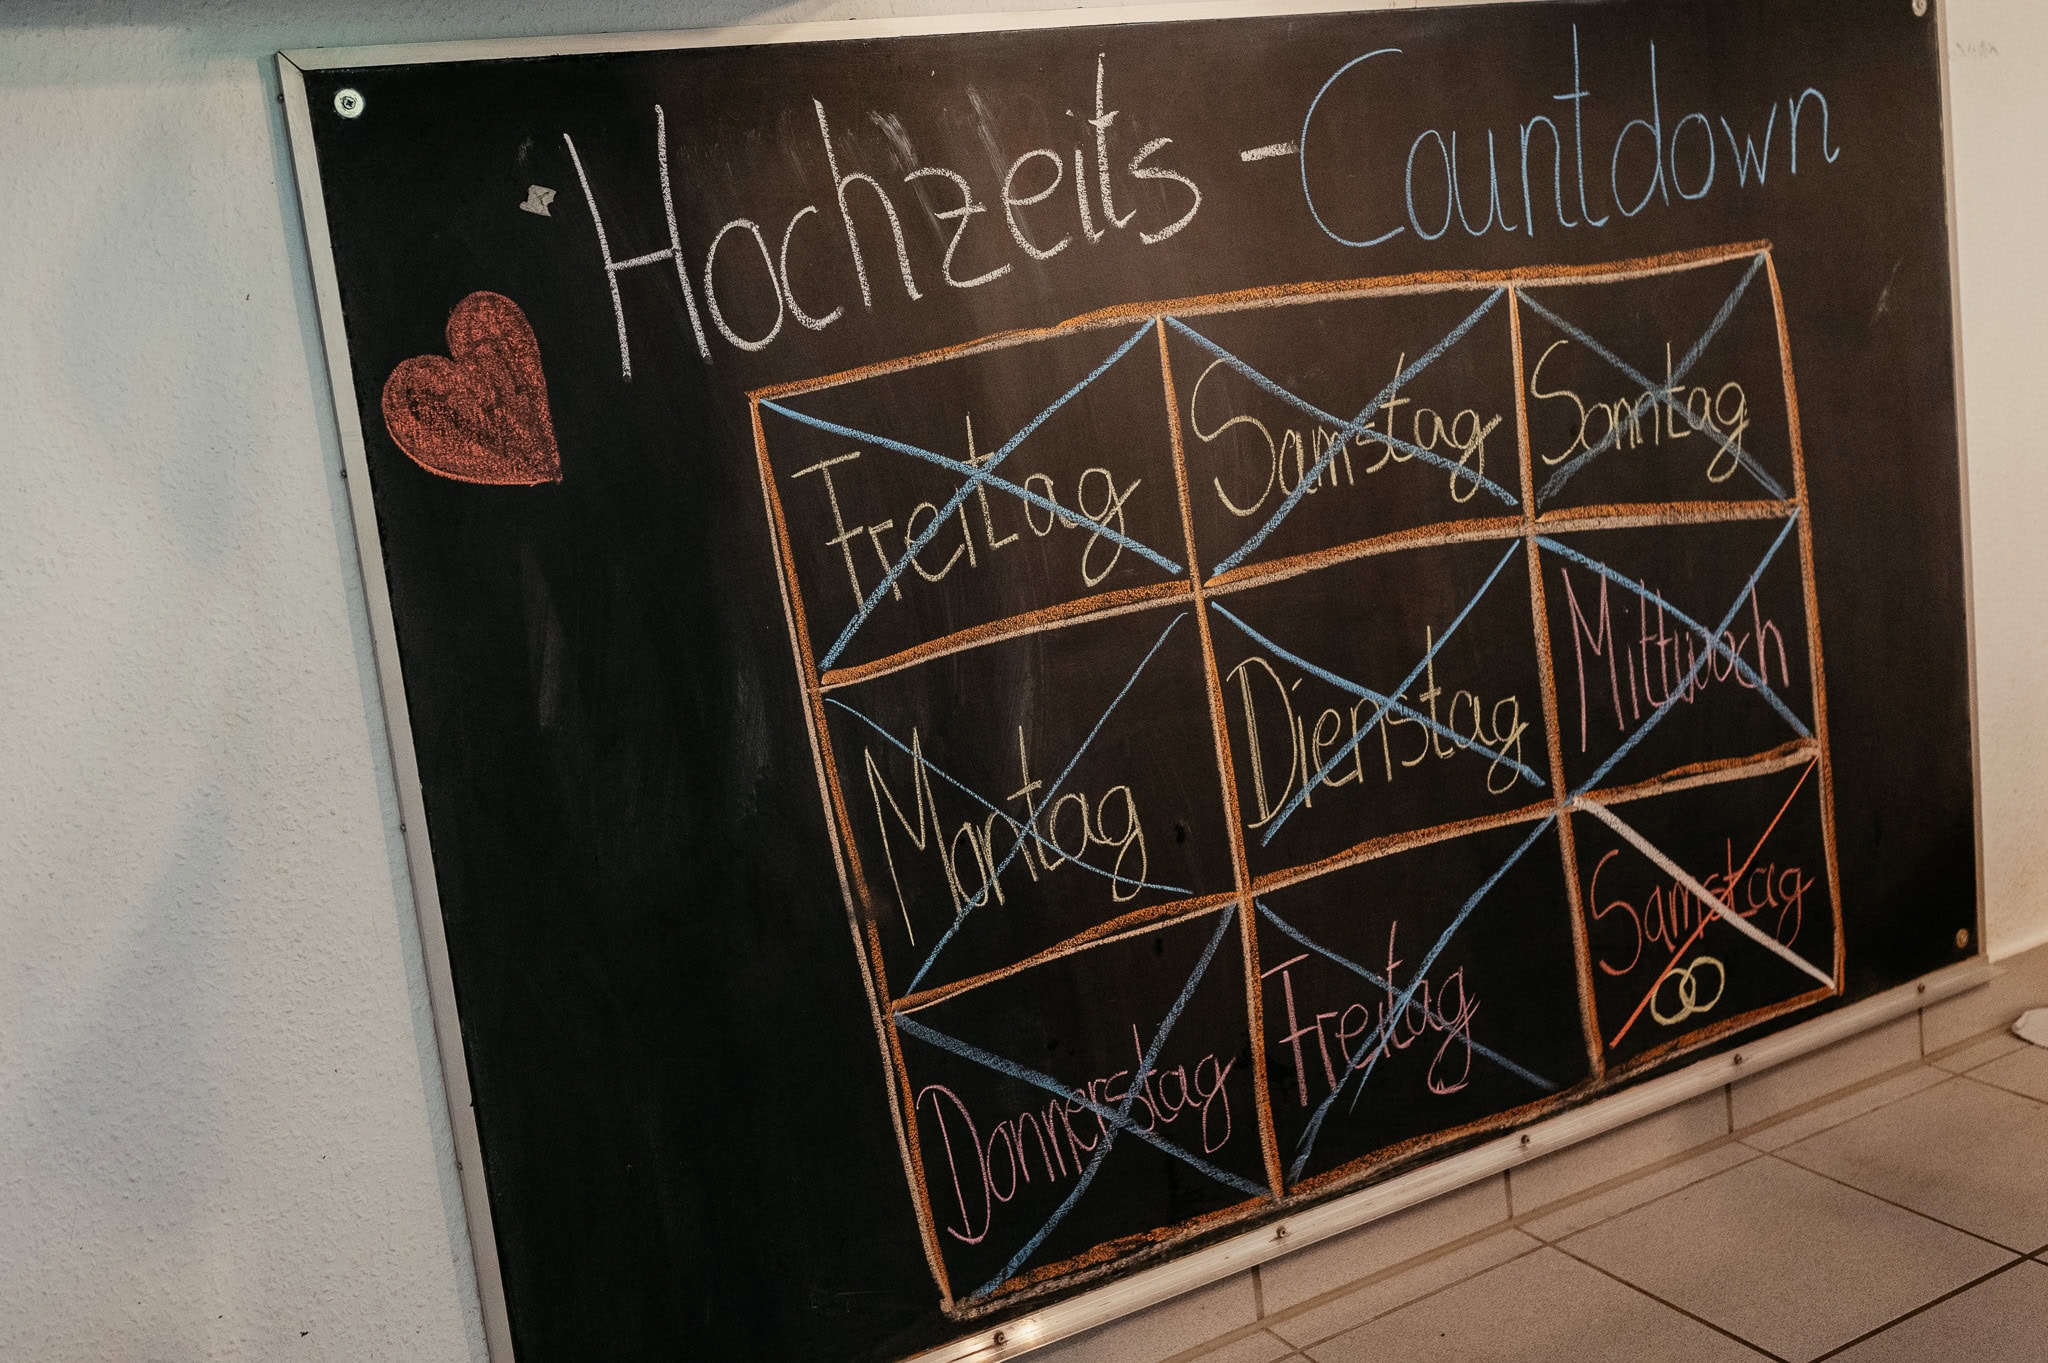 Hochzeits-Countdown
Freitag Samstag Sonntag
Montag Dienstag Mittwoch
Donnerstag Freitag Samstag